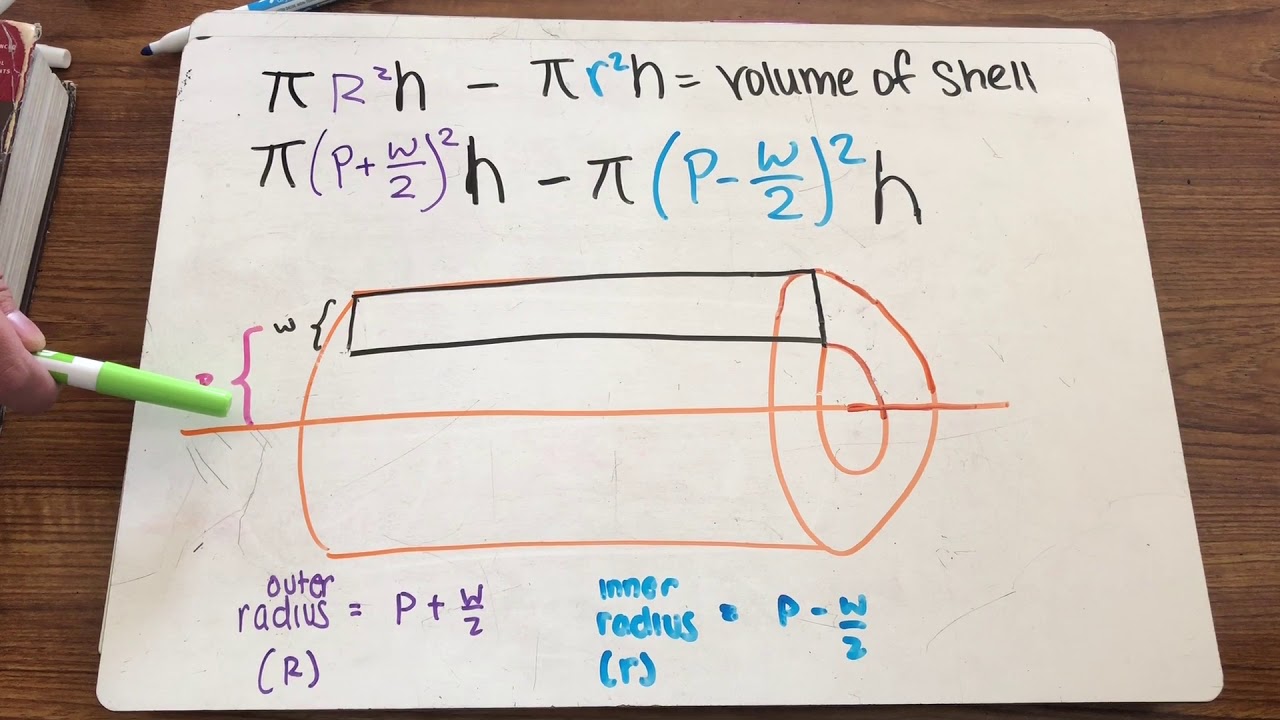 π R²h − π r²h = volume of shell
π(P + w/2)²h − π(P − w/2)²h
w {
outer
radius = P + w/2
(R)
inner
radius = P − w/2
(r)